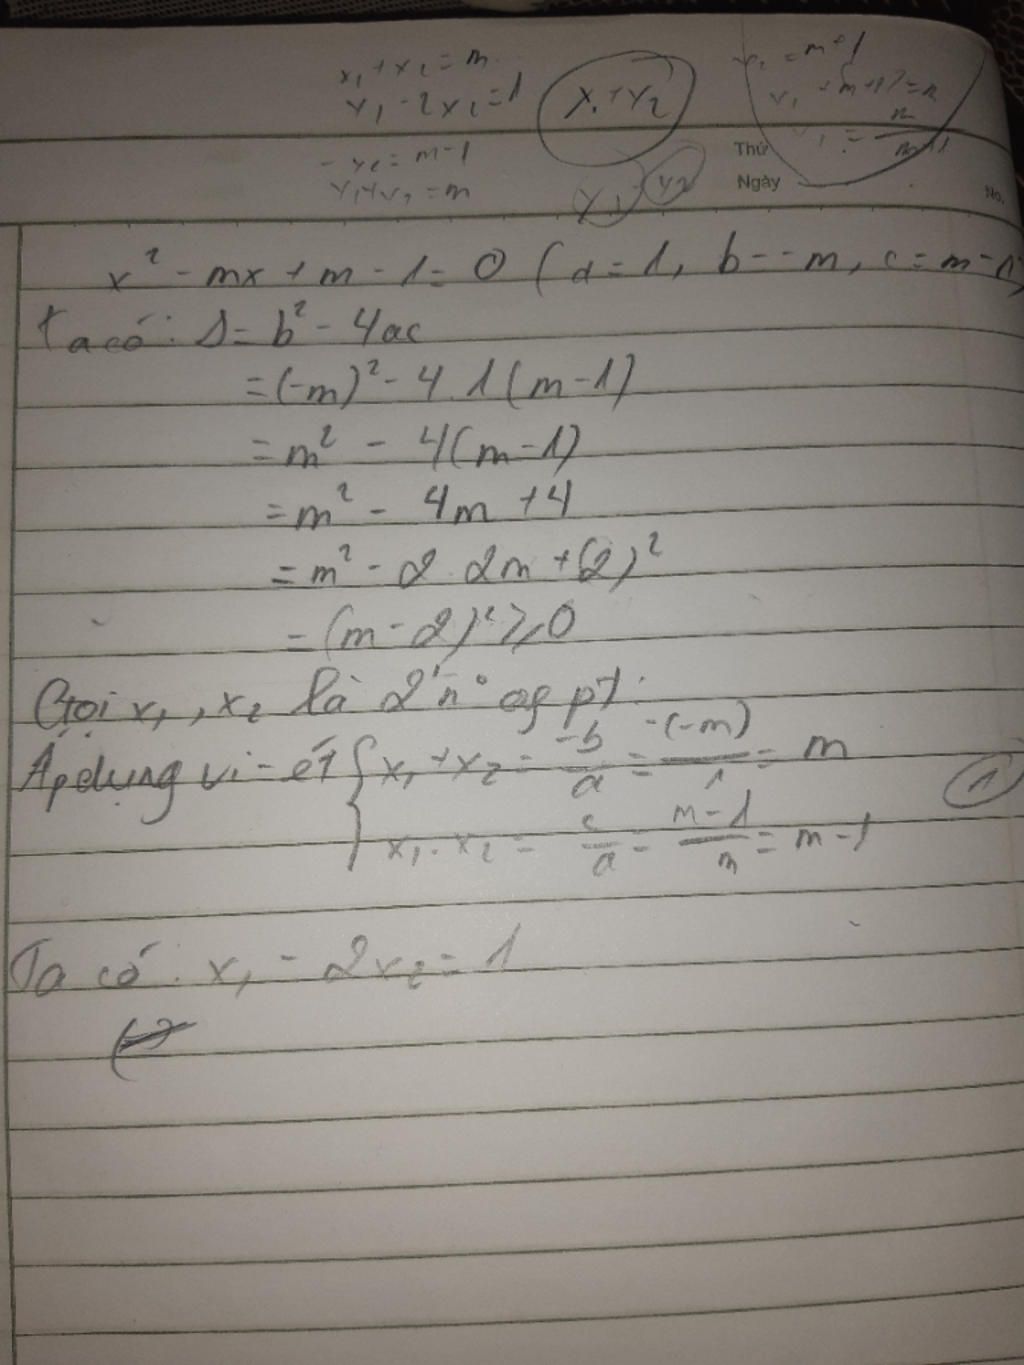 x₁ + x₂ = m
x₁ - 2x₂ = 1
x₁ + x₂
x₂ = m+1
- x₂ = m-1
x₁+x₂ = m
x₁ x₂
Thứ
Ngày
No.
x² - mx + m - 1 = 0 (a = 1, b = -m, c = m-1)
Ta có: Δ = b² - 4ac
= (-m)² - 4.1(m-1)
= m² - 4(m-1)
= m² - 4m + 4
= m² - 2.2m + (2)²
= (m-2)² ≥ 0
Gọi x₁, x₂ là 2 n° củ pt:
Áp dụng vi-ét { x₁ + x₂ = -b/a = -(-m)/1 = m
x₁.x₂ = c/a = m-1/m = m-1
(1)
Ta có: x₁ - 2x₂ = 1